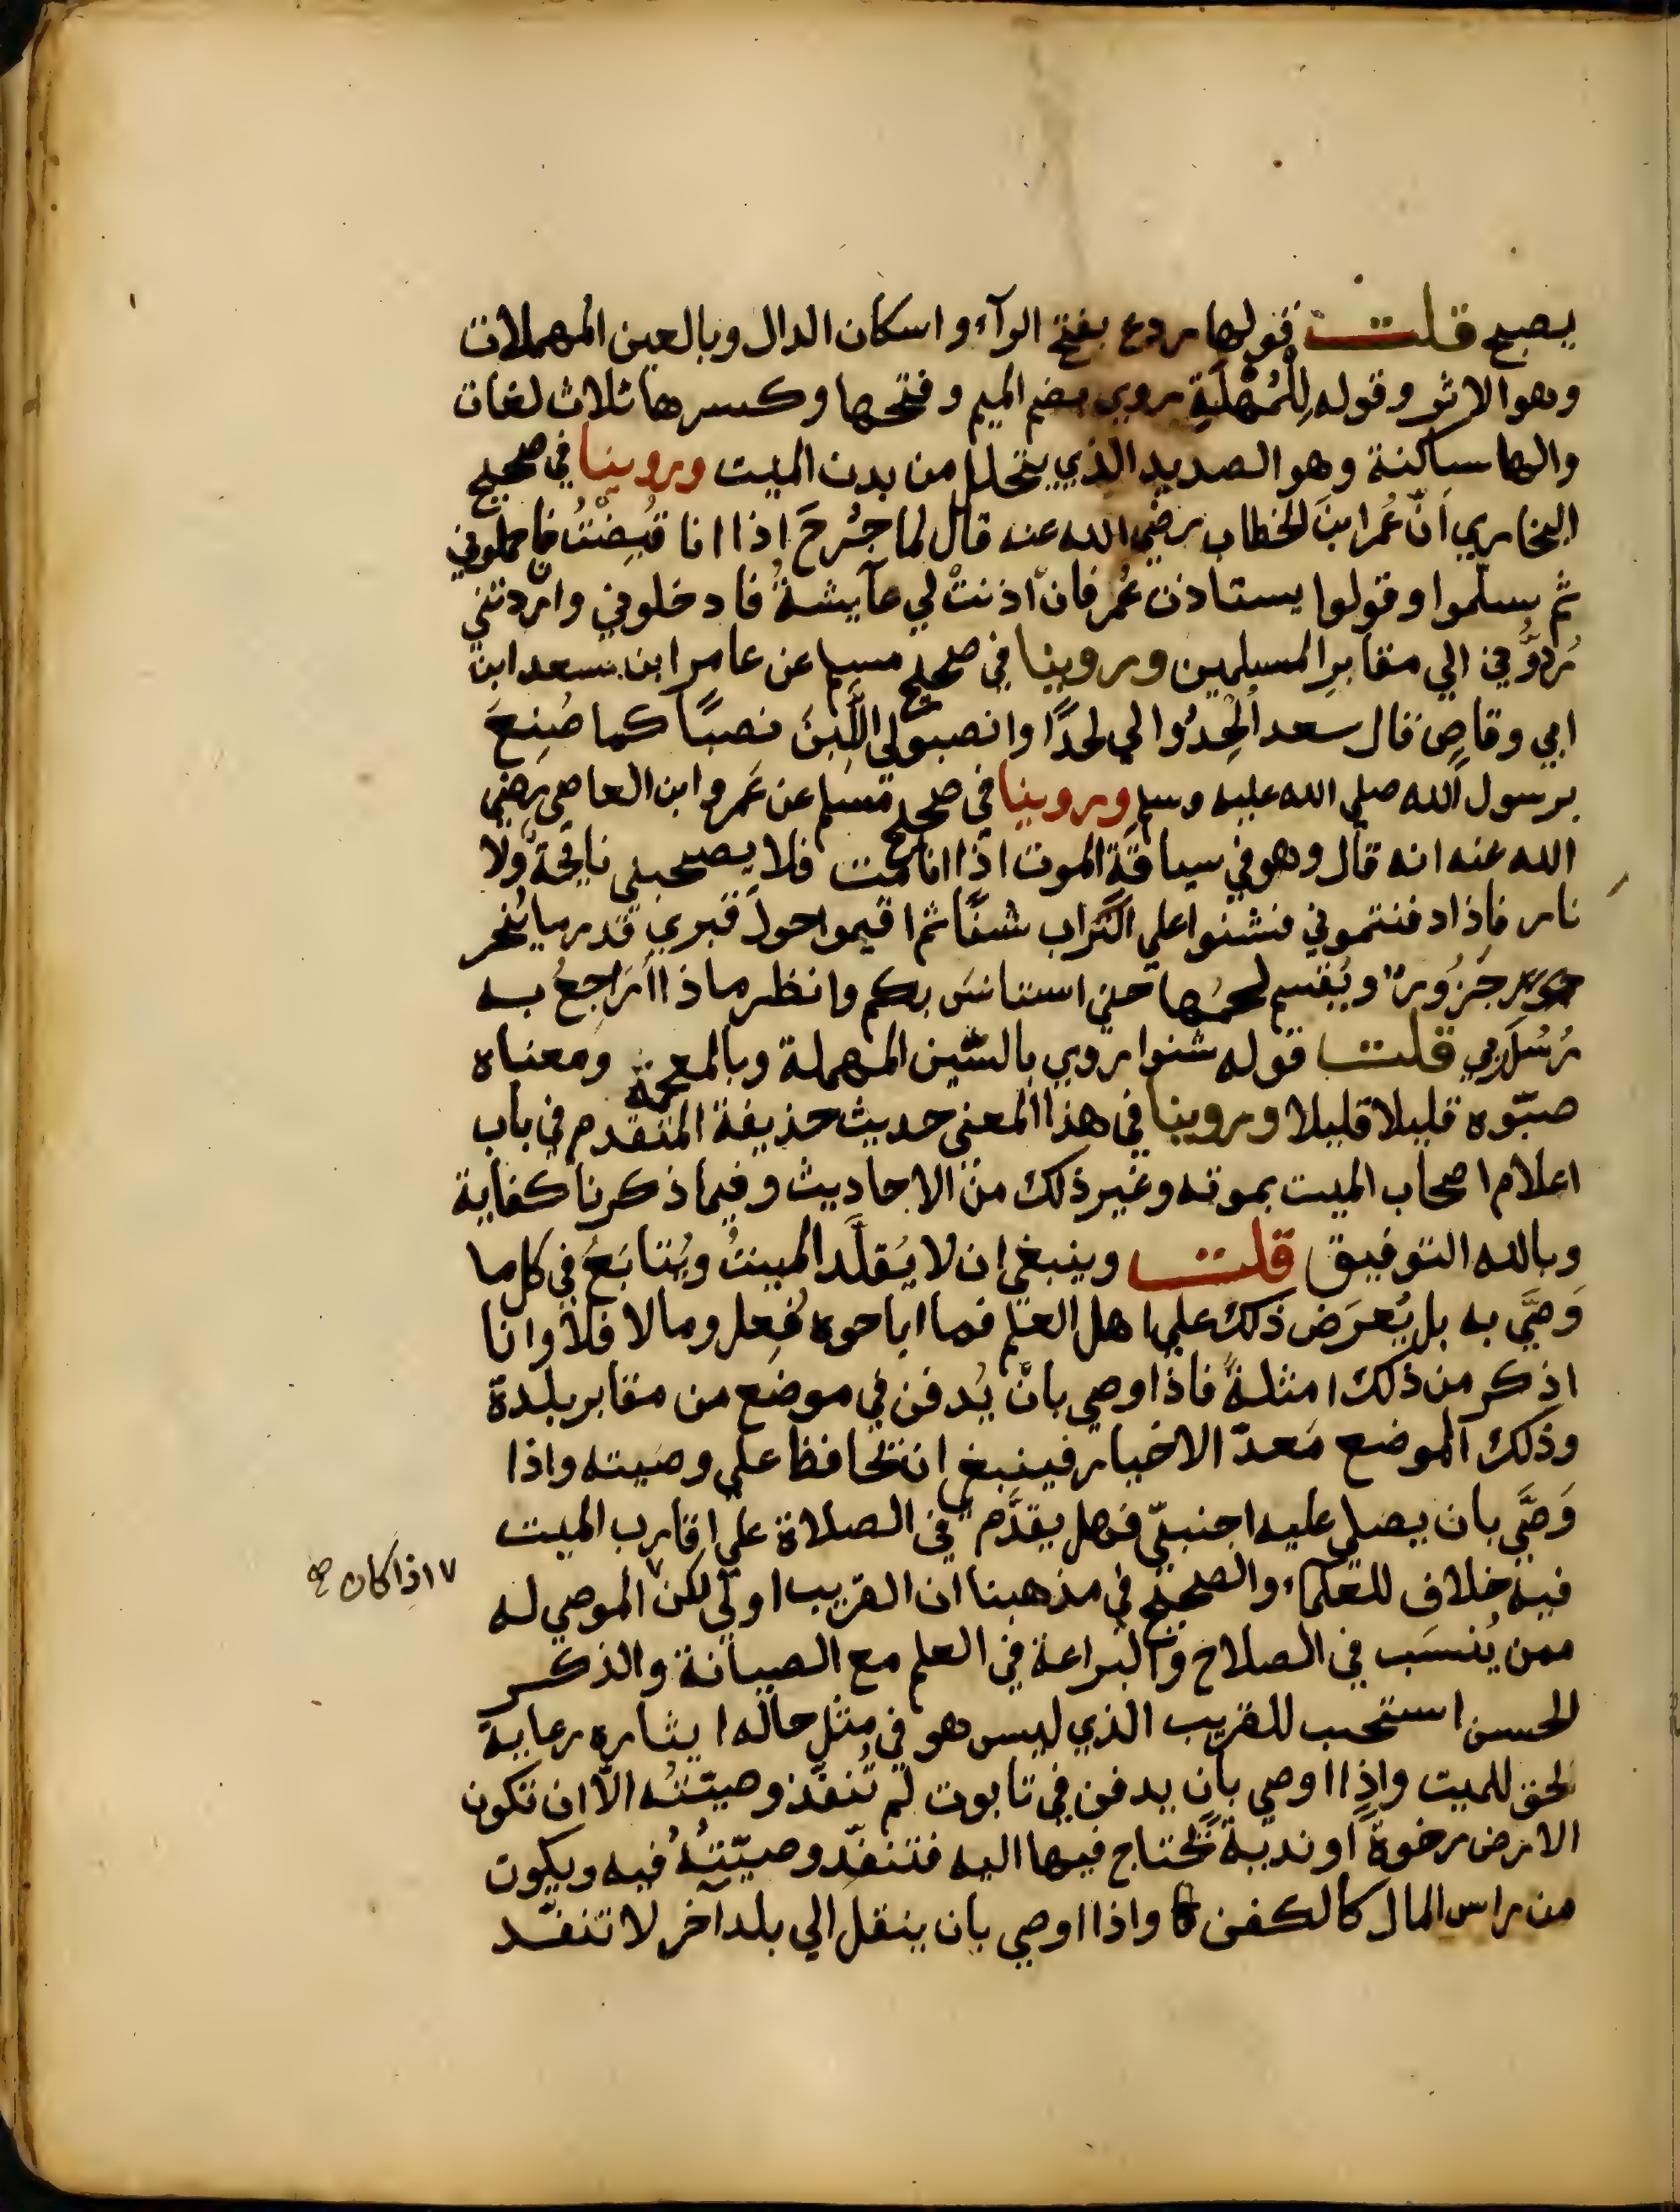 يصبح قلت قولها ردع بفتح الرآء واسكان الدال وبالعين المهملات
وهو الاثر وقوله لِلْمُهْلَةِ روي بضم الميم وفتحها وكسرها ثلاث لغات
والها ساكنة وهو الصديد الذي يتحلل من بدن الميت وروينا في صحيح
البخاري اَنّ عُمَر ابنَ الخطاب رضي الله عنه قال لما جُرحَ اذا انا قُبِضْتُ فاحملوني
ثم سلّموا وقولوا يستاذن عُمر فان اذنتْ لي عآيشةُ فادخلوني وان ردتني
رُدوُّني الي مقابرِ المسلمين وروينا في صحيح مسلم عن عامر ابن سعد ابن
ابي وقاصٍ قال سعد اْلحِدُوا لي لحدًا وانصبو لي اللَّبِنَ نصبًا كما صُنِعَ
برسول الله صلي الله عليه وسلم وروينا في صحيح مسلم عن عَمرو ابن العاصي رضي
الله عنه انه قال وهو في سياقة الموت اذا انا مت فلا يصحبني نايحةٌ ولا
نار فاذا دفنتموني فشنوا علي التراب شنًّا ثم اقيموا حولَ قبري قدر ما يُنحر
جَزُورٌ ويُقسم لحمُها حتى استانسَ بكم وانظر ماذا اُرَاجعُ به
رُسُلَ ربي قلت قوله شنوا روي بالسّين المهملة وبالمعجمة ومعناه
صبّوه قليلا قليلا وروينا في هذا المعني حديث حذيفة المتقدم في باب
اعلام اصحاب الميت بموته وغير ذلك من الاحاديث وفيما ذكرنا كفاية
وبالله التوفيق قلت وينبغي ان لا يُقلَّد الميتُ ويُتابَعُ في كل ما
وَصَّي به بل يُعرَض ذلك علي اهل العلم فما اباحوه فُعِل وما لا فلا وانا
اذكر من ذلك امثلةً فاذا اوصي بانْ يُدفن في موضع من مقابر بلدة
وذلك الموضع مَعدنّ الاخيار فينبغي ان تحافظ علي وصيته واذا
وَصَّي بان يصلي عليه اجنبيّ فهل يقدَّم في الصلاة علي اقارب الميت
فيه خلاف للعلماء والصحيح في مذهبنا ان القريب اولي لكن ٧ الموصي له
٧ اذا كان صح
ممن يُنسَب في الصلاح والبراعة في العلم مع الصيانة والذكر
الحسن استحب للقريب الذي ليس هو في مثل حاله ايثاره رعاية
لحق للميت واذا اوصي بان يدفن في تابوت لم تُنفَّذ وصيّتُه الاّ ان تكون
الارض رخوةً او نديةً تحتاج فيها اليه فتنفّد وصيّتُهُ فيه ويكون
من راس المال كالكفن واذا اوصي بان ينقل الي بلد آخر لا تنفّد